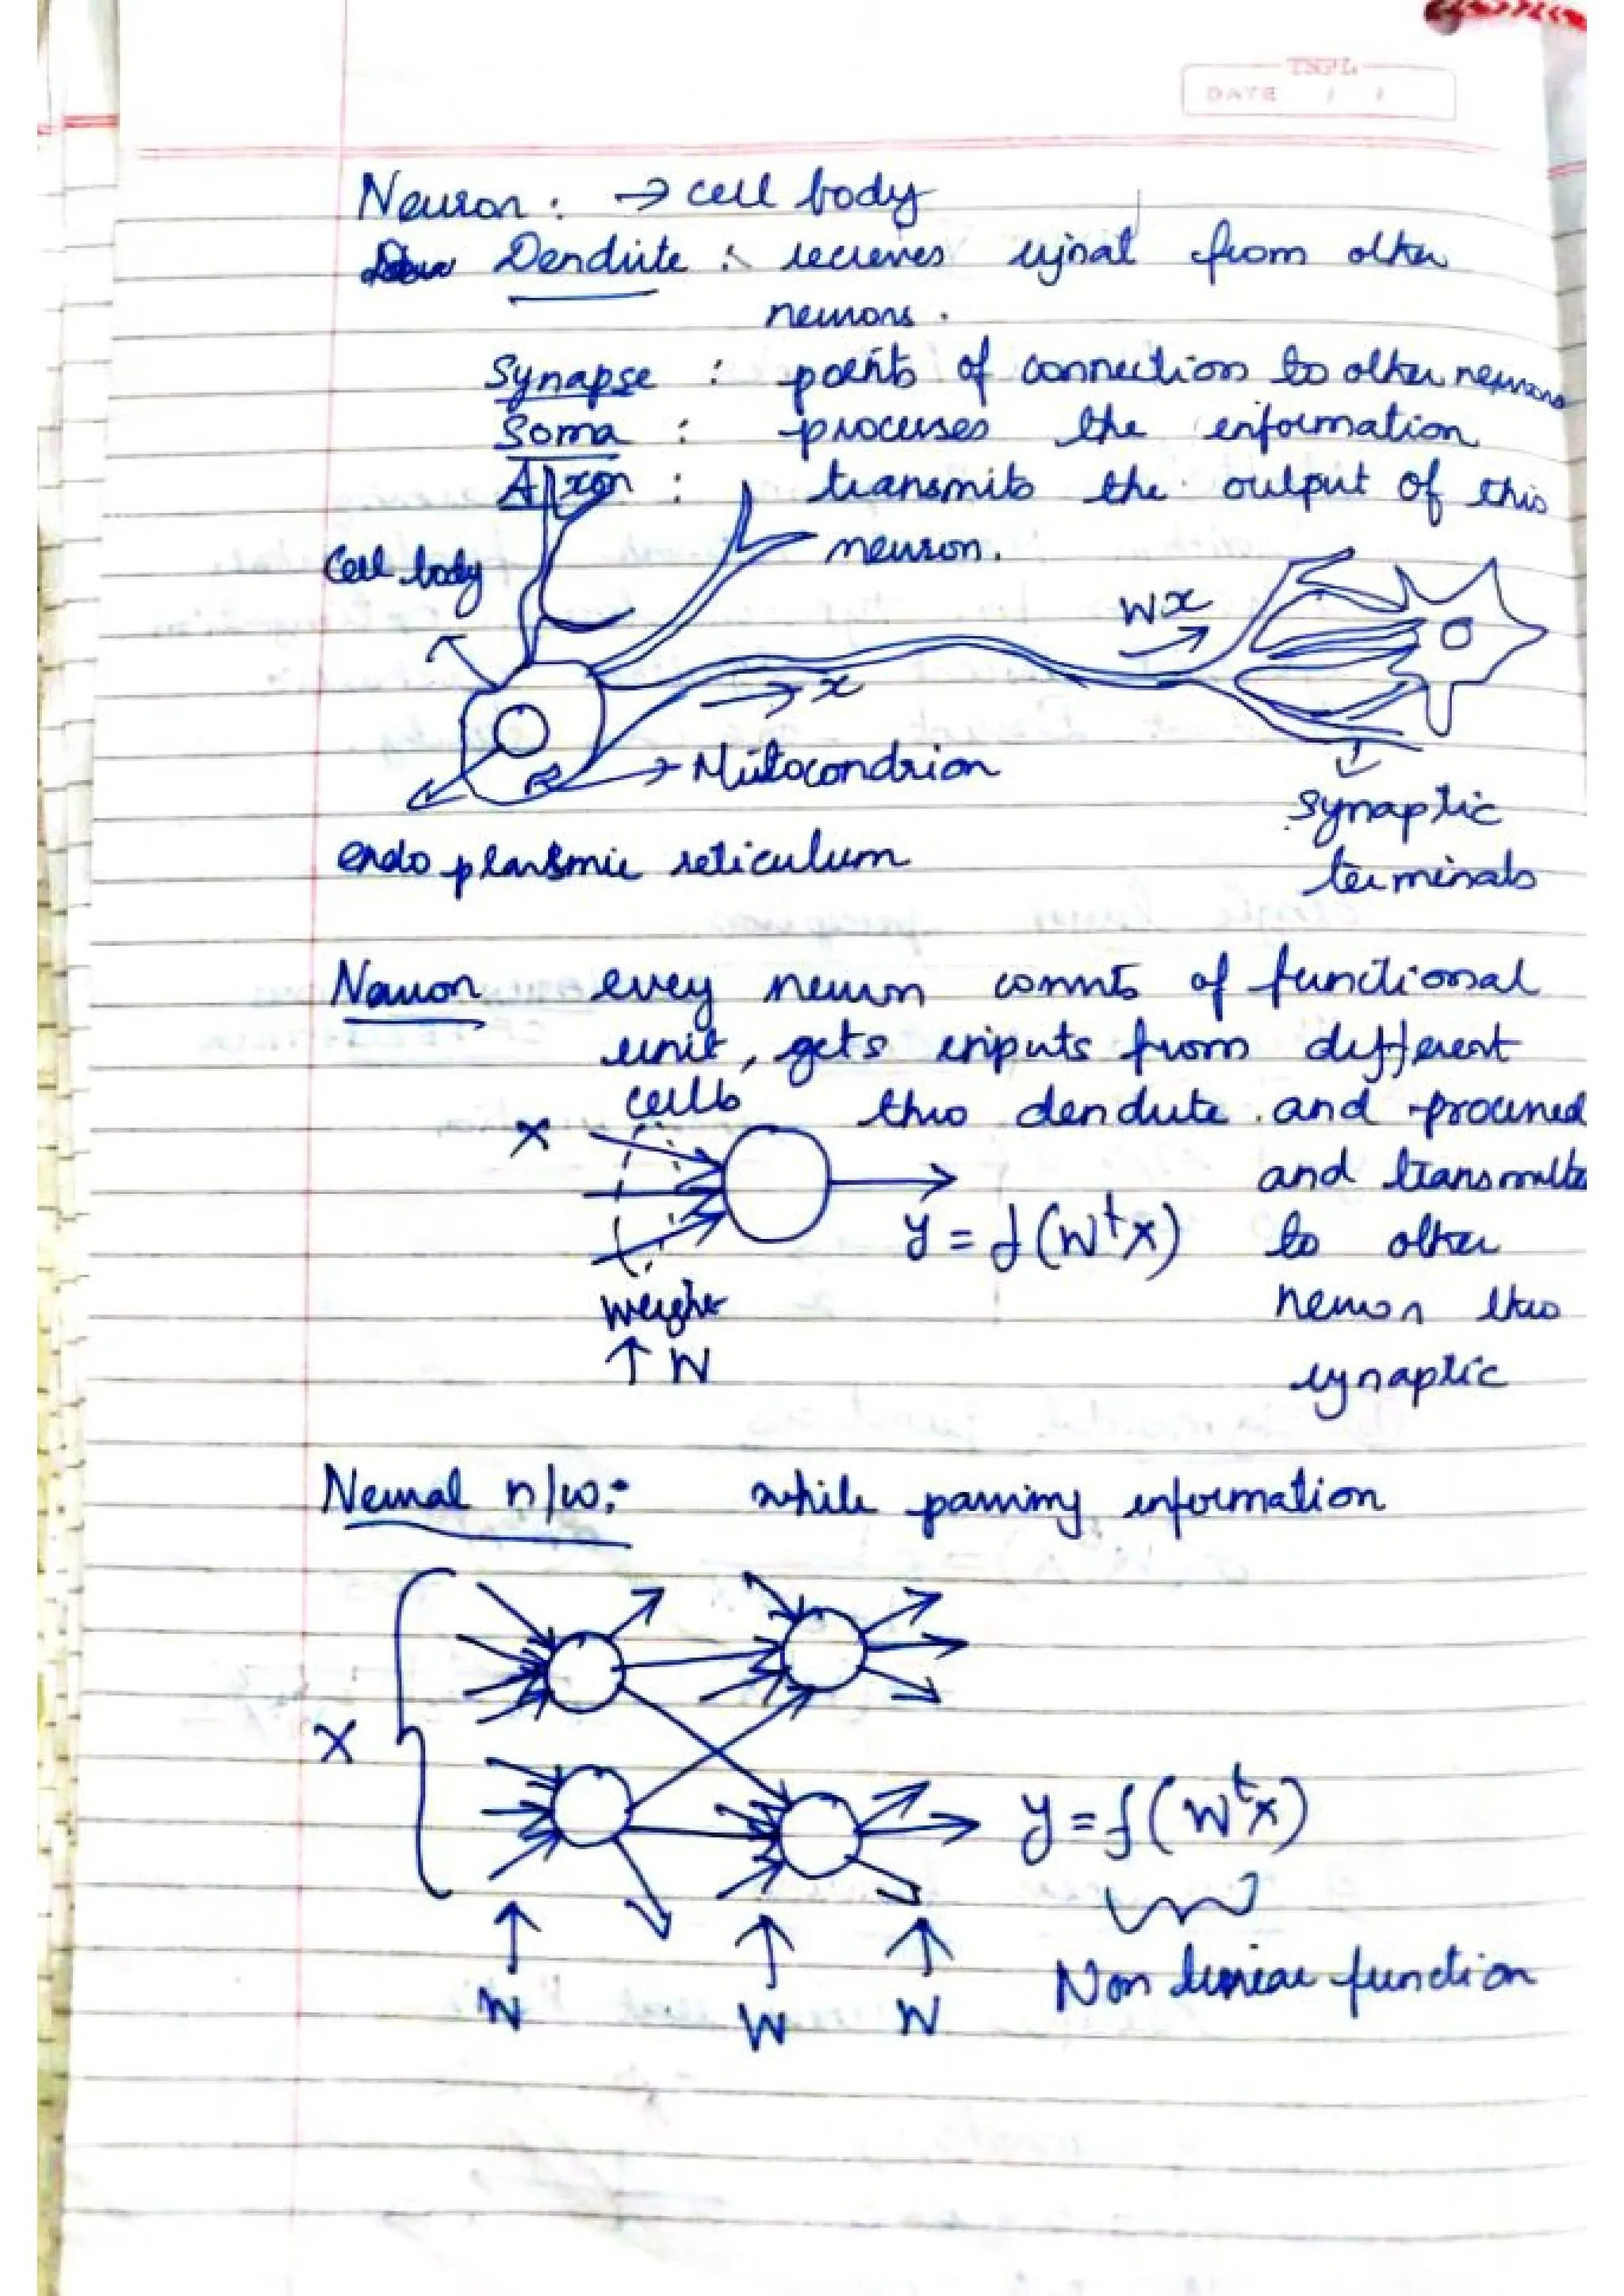 TNPL
DATE / /
Neuron : → cell body
Dendrite : recieves signal from other
neurons .
Synapse : points of connection to other neurons
Soma : processes the information
Axon : transmits the output of this
neuron.
Cell body
Wx
→ x
→ Mitocondrion
synaptic
terminals
endo plasmic reticulum
Neuron every neuron consists of functional
unit, gets inputs from different
cells thro dendrite and processed
X
and transmitts
y = f(WᵗX) to other
weight neuron thro
↑ W
synaptic
Neural n/w:- while passing information
X
y = f(WᵗX)
W W W
Non linear function